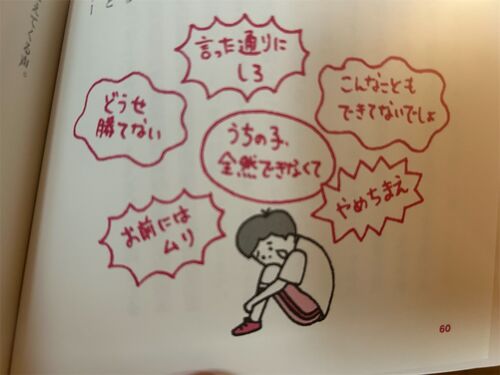 言った通りに
しろ
どうせ
勝てない
こんなことも
できてないでしょ
うちの子、
全然できなくて
お前には
ムリ
やめちまえ
60